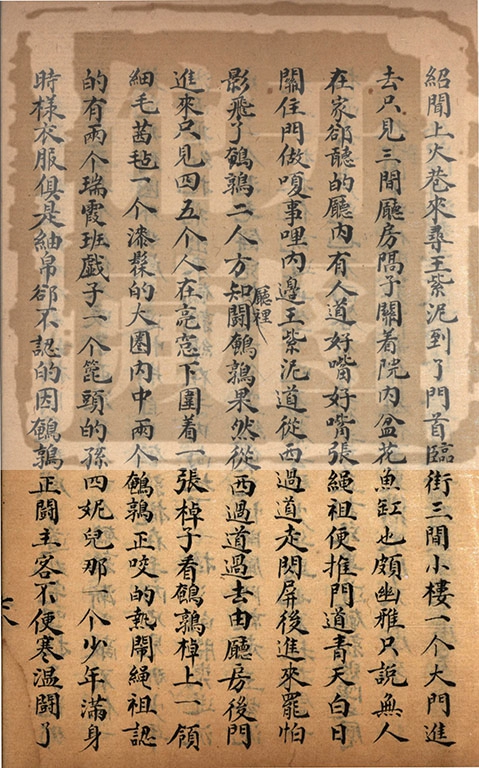 紹聞上火巷來尋王紫泥到了門首臨街三間小樓一个大門進
去只見三間廳房隔子關着院内盆花魚缸也頗幽雅只說無人
在家郤聽的廳内有人道好嘴好嘴張繩祖便推門道青天白日
關住門做嗄事哩内邊王紫泥道從西過道走閃屏後進來罷怕
影飛了鵪鶉二人方知廳裡鬪鵪鶉果然從西過道過去由廳房後門
進來只見四五个人在亮窓下圍着一張棹子看鵪鶉棹上一領
細毛茜毡一个漆髹的大圏内中兩个鵪鶉正咬的熱鬧繩祖認
的有兩个瑞霞班戲子一个篦頭的孫四妮兒那一个少年滿身
時様衣服俱是紬帛郤不認的因鵪鶉正鬪主客不便寒温鬪了